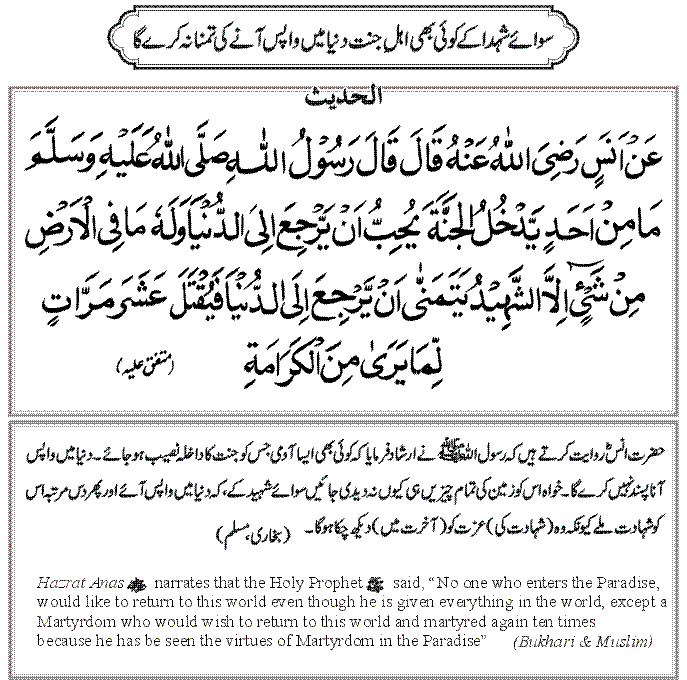 سوائے شہدا کے کوئی بھی اہل جنت دنیا میں واپس آنے کی تمنا نہ کرے گا
الحدیث
عَنْ اَنَسٍ رَضِیَ اللّٰهُ عَنْهُ قَالَ قَالَ رَسُوْلُ اللّٰهِ صَلَّی اللّٰهُ عَلَیْهِ وَسَلَّمَ
مَا مِنْ اَحَدٍ یَّدْخُلُ الْجَنَّةَ یُحِبُّ اَنْ یَّرْجِعَ اِلَی الدُّنْیَا وَلَهٗ مَا فِی الْاَرْضِ
مِنْ شَیْئٍ اِلَّا الشَّهِیْدُ یَتَمَنّٰی اَنْ یَّرْجِعَ اِلَی الدُّنْیَا فَیُقْتَلَ عَشَرَ مَرَّاتٍ
لِمَا یَرٰی مِنَ الْکَرَامَةِ (متفق علیہ)
حضرت انسؓ روایت کرتے ہیں کہ رسول اللہ ﷺ نے ارشاد فرمایا کہ کوئی بھی ایسا آدمی جس کو جنت کا داخلہ نصیب ہو جائے۔ دنیا میں واپس
آنا پسند نہیں کرے گا۔ خواہ اس کو زمین کی تمام چیزیں ہی کیوں نہ دیدی جائیں سوائے شہید کے، کہ دنیا میں واپس آئے اور پھر دس مرتبہ اس
کو شہادت ملے کیونکہ وہ (شہادت کی) عزت کو (آخرت میں) دیکھ چکا ہوگا۔ (بخاری، مسلم)
Hazrat Anas narrates that the Holy Prophet ﷺ said, “No one who enters the Paradise,
would like to return to this world even though he is given everything in the world, except a
Martyrdom who would wish to return to this world and martyred again ten times
because he has be seen the virtues of Martyrdom in the Paradise” (Bukhari & Muslim)